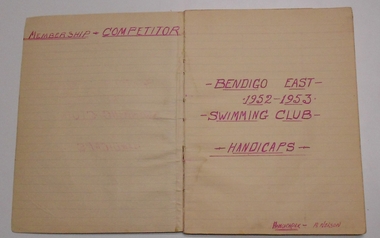 MEMBERSHIP - COMPETITOR
- BENDIGO EAST -
· 1952 - 1953 ·
- SWIMMING CLUB -
- HANDICAPS -